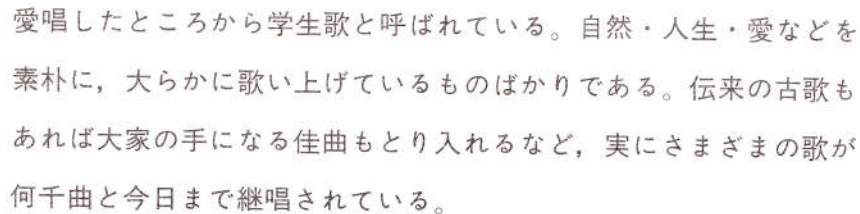 愛唱したところから学生歌と呼ばれている。自然・人生・愛などを
素朴に，大らかに歌い上げているものばかりである。伝来の古歌も
あれば大家の手になる佳曲もとり入れるなど，実にさまざまの歌が
何千曲と今日まで継唱されている。